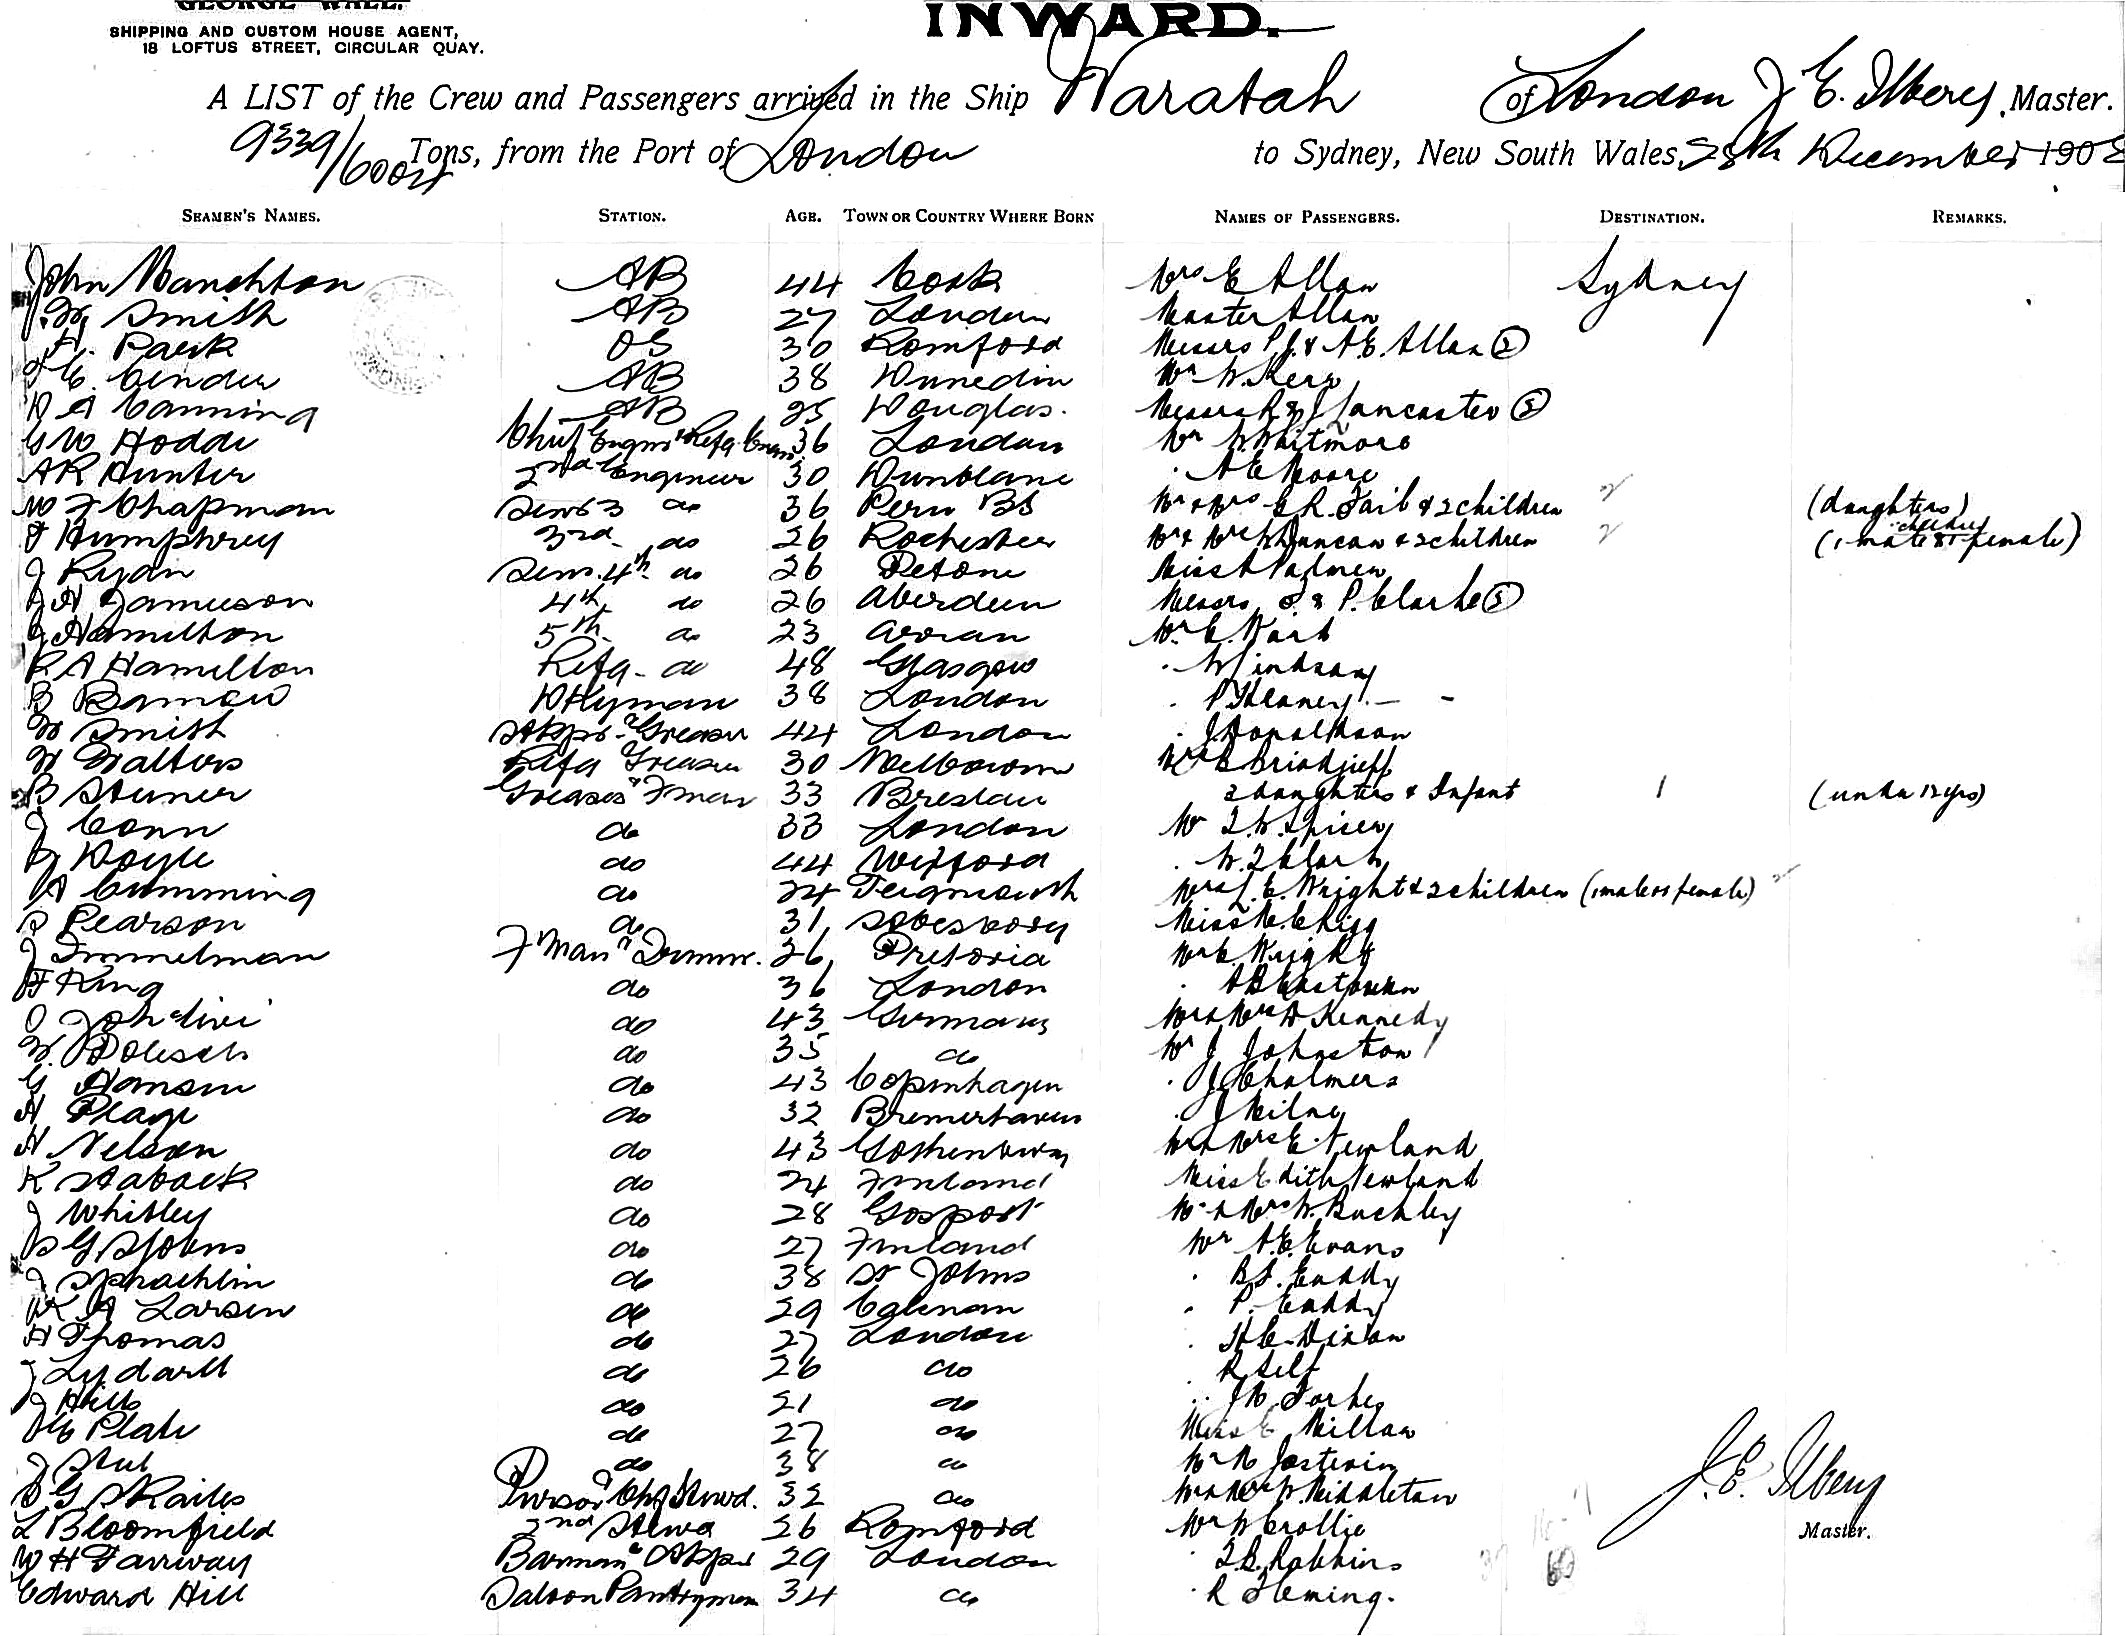 GEORGE WALL.
SHIPPING AND CUSTOM HOUSE AGENT,
18 LOFTUS STREET, CIRCULAR QUAY.
INWARD.
A LIST of the Crew and Passengers arrived in the Ship Waratah of London J. E. Ilbery, Master.
9339/6004 Tons, from the Port of London to Sydney, New South Wales, 28th December 1908
SEAMEN'S NAMES. STATION. AGE. TOWN OR COUNTRY WHERE BORN NAMES OF PASSENGERS. DESTINATION. REMARKS.
John AB 44 Cork Mrs E Allan Sydney
Smith AB 27 London Master Allan
OS 30 Romford Messrs P.J. & A.E. Allan (2)
AB 38 Dunedin Mr W. Kerr
D A Canning AB 25 Douglas. Messrs R & J Lancaster (2)
G W Hodde Chief Engnr & Refg. Engnr. 36 London Mr W. Whitmore
A R Hunter 2nd Engineer 30 Dunblane . A E Moore
W F Chapman Senr 3 do 36 Mr & Mrs E. R. Tail & 2 children 2 (daughters)
F Humphrey 3rd do 26 Rochester Mr & Mrs Duncan & 2 children 2 (1 male & 1 female)
J Ryan Senr. 4th do 26 Petone Miss Palmer
J H Jamieson 4th do 26 Aberdeen Messrs & P. Clarke
J Hamilton 5th do 23 Arran Mr
R A Hamilton Refg - do 48 Glasgow . Lindsay
Dkyman 38 London . P Heaney -
W Smith Stkpr & Greaser 44 London . J Donaldson
W Walters Refg Greaser 30 Melbourne Mrs
B Steiner Greaser & Fman 33 Breslau 2 daughters & Infant 1 (under 12 yrs)
J Conn do 33 London Mr T. W. Spicer
J Doyle do 44 Wexford . W. T Clark
A Cumming do 24 Teignmouth Mrs L. E. Wright & 2 children (1 male & 1 female) 2
Pearson do 31 Miss M. Chigg
J Immelman F'Man & Trimmr. 26 Pretoria Mr E. Wright
F King do 36 London . A B
do 43 Germany Mr & Mrs A Kennedy
W. Bolesch do 35 do Mr J Johnston
G Hansen do 43 Copenhagen . J Chalmers
H do 32 Bremerhaven . J Milne
H Nelson do 43 Gothenburg Mr & Mrs E. Newland
K Staback do 24 Finland Miss Edith Newland
J Whitley do 28 Gosport Mr & Mrs W. Buckley
do 27 Finland Mr A. E. Evans
J Sprachlin do 38 St Johns . B J. Caddy
K A Larsen do 29 . P. Caddy
H Thomas do 27 London . H. C. Dixon
J Lydarll do 26 do . R Self
J Hills do 21 do . J M Forbes
Plate do 27 do Miss E Millar
J do 38 do Mr
S G Skailes Purser & Chf Stewd. 32 do Mr & Mrs W. Middleton
L Bloomfield 2nd Stewd 26 Romford Mr W Crollie
W H Fairway Barman & Stkpr 29 London . T. B. Robbins
Edward Hill Saloon Pantryman 34 do . R Fleming.
J. E. Ilbery
Master.